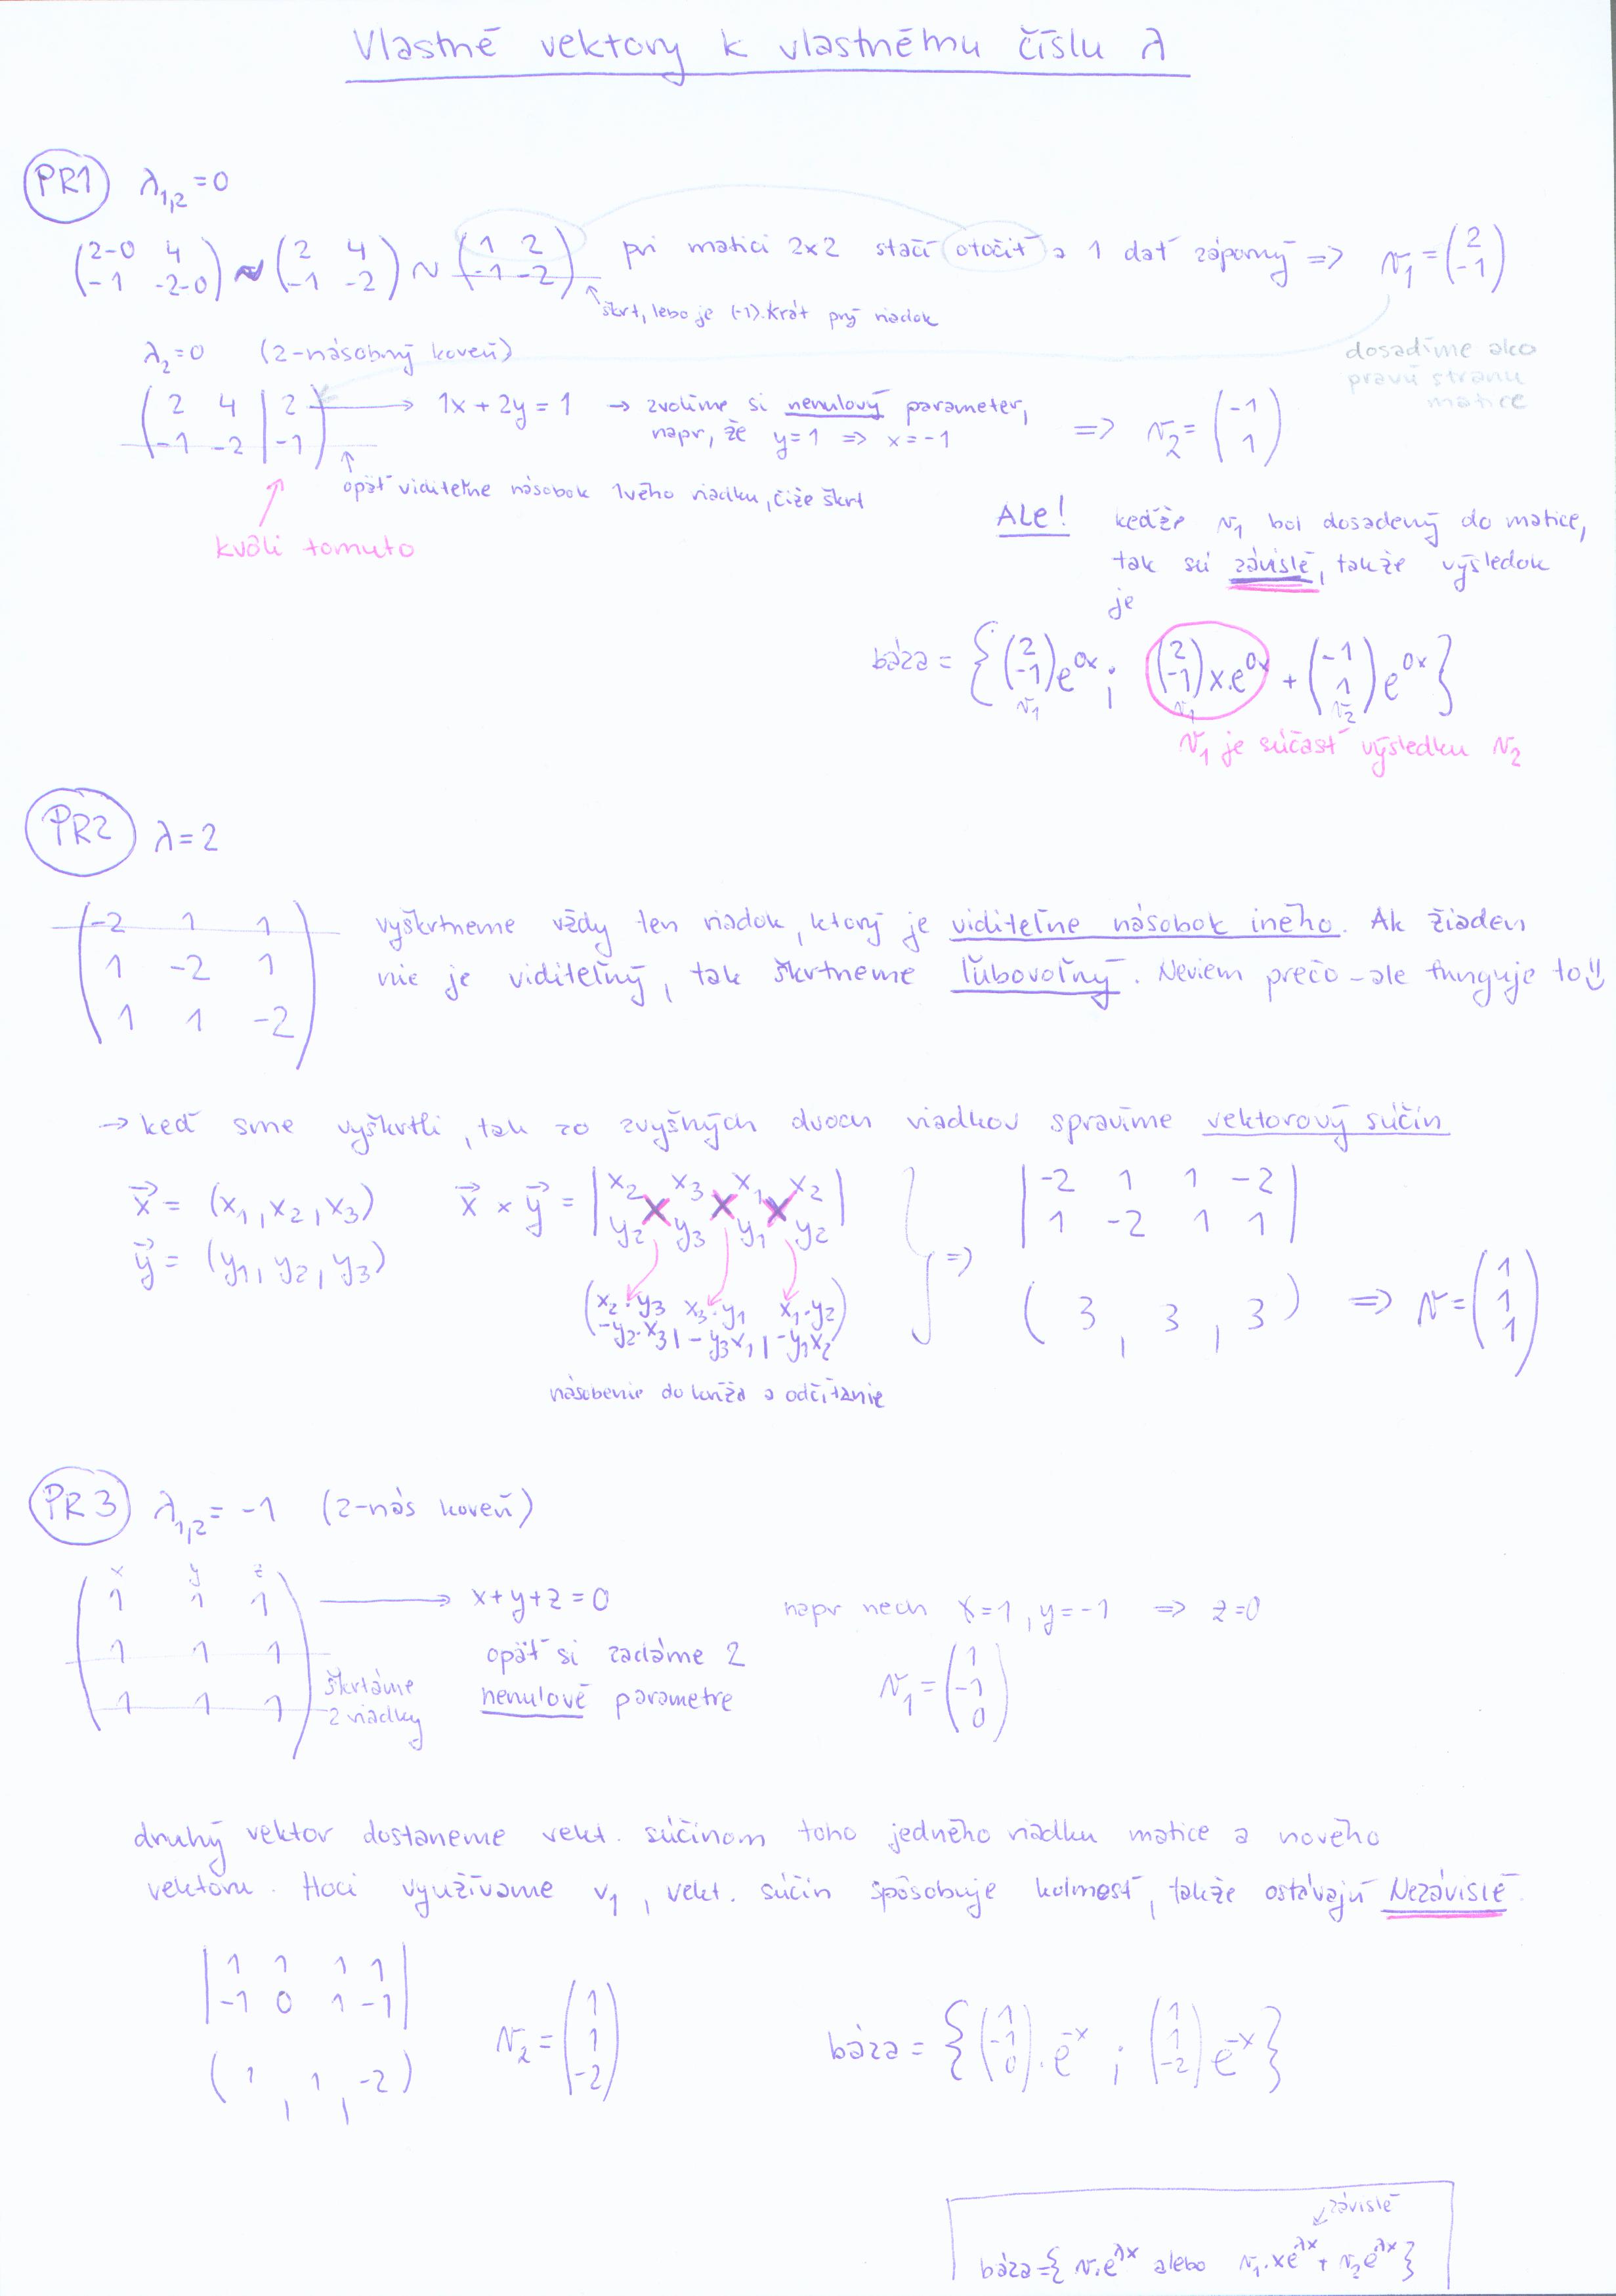 Vlastné vektory k vlastnému číslu λ
PR1 λ1,2 = 0
(2-0 4 / -1 -2-0) ~ (2 4 / -1 -2) ~ (1 2 / -1 -2) pri matici 2x2 stačí otočiť a 1 dať záporný => v1 = (2 / -1)
škrt, lebo je (-1).krát prvý riadok
λ2 = 0 (2-násobný koreň)
dosadíme ako
pravú stranu
matice
(2 4 | 2 / -1 -2 | -1) → 1x + 2y = 1 → zvolíme si nenulový parameter,
napr, že y=1 => x=-1 => v2 = (-1 / 1)
opäť viditeľne násobok 1vého riadku, čiže škrt
kvôli tomuto
ALE! keďže v1 bol dosadený do matice,
tak sú závislé, takže výsledok
je
báza = {(2 / -1) e^0x ; (2 / -1) x.e^0x + (-1 / 1) e^0x}
v1 v1 v2
v1 je súčasť výsledku v2
PR2 λ = 2
(-2 1 1 / 1 -2 1 / 1 1 -2)
vyškrtneme vždy ten riadok, ktorý je viditeľne násobok iného. Ak žiaden
nie je viditeľný, tak škrtneme ľubovoľný. Neviem prečo - ale funguje to
→ keď sme vyškrtli, tak zo zvyšných dvoch riadkov spravíme vektorový súčin
x = (x1, x2, x3) x × y = |x2 x3 x1 x2 / y2 y3 y1 y2| => |-2 1 1 -2 / 1 -2 1 1|
y = (y1, y2, y3)
(x2.y3 - y2.x3, x3.y1 - y3x1, x1.y2 - y1x2) (3, 3, 3) => v = (1 / 1 / 1)
násobenie do kríža a odčítanie
PR3 λ1,2 = -1 (2-nás koreň)
x y z
(1 1 1 / 1 1 1 / 1 1 1) → x+y+z=0 napr nech x=1, y=-1 => z=0
opäť si zadáme 2
nenulové parametre v1 = (1 / -1 / 0)
škrtáme
2 riadky
druhý vektor dostaneme vekt. súčinom toho jedného riadku matice a nového
vektoru. Hoci využívame v1, vekt. súčin spôsobuje kolmosť, takže ostávajú Nezávislé.
|1 1 1 1 / -1 0 1 -1|
(1, 1, -2) v2 = (1 / 1 / -2) báza = {(1 / -1 / 0).e^-x ; (1 / 1 / -2) e^-x}
závislé
báza = {v.e^λx alebo v1.xe^λx + v2e^λx}